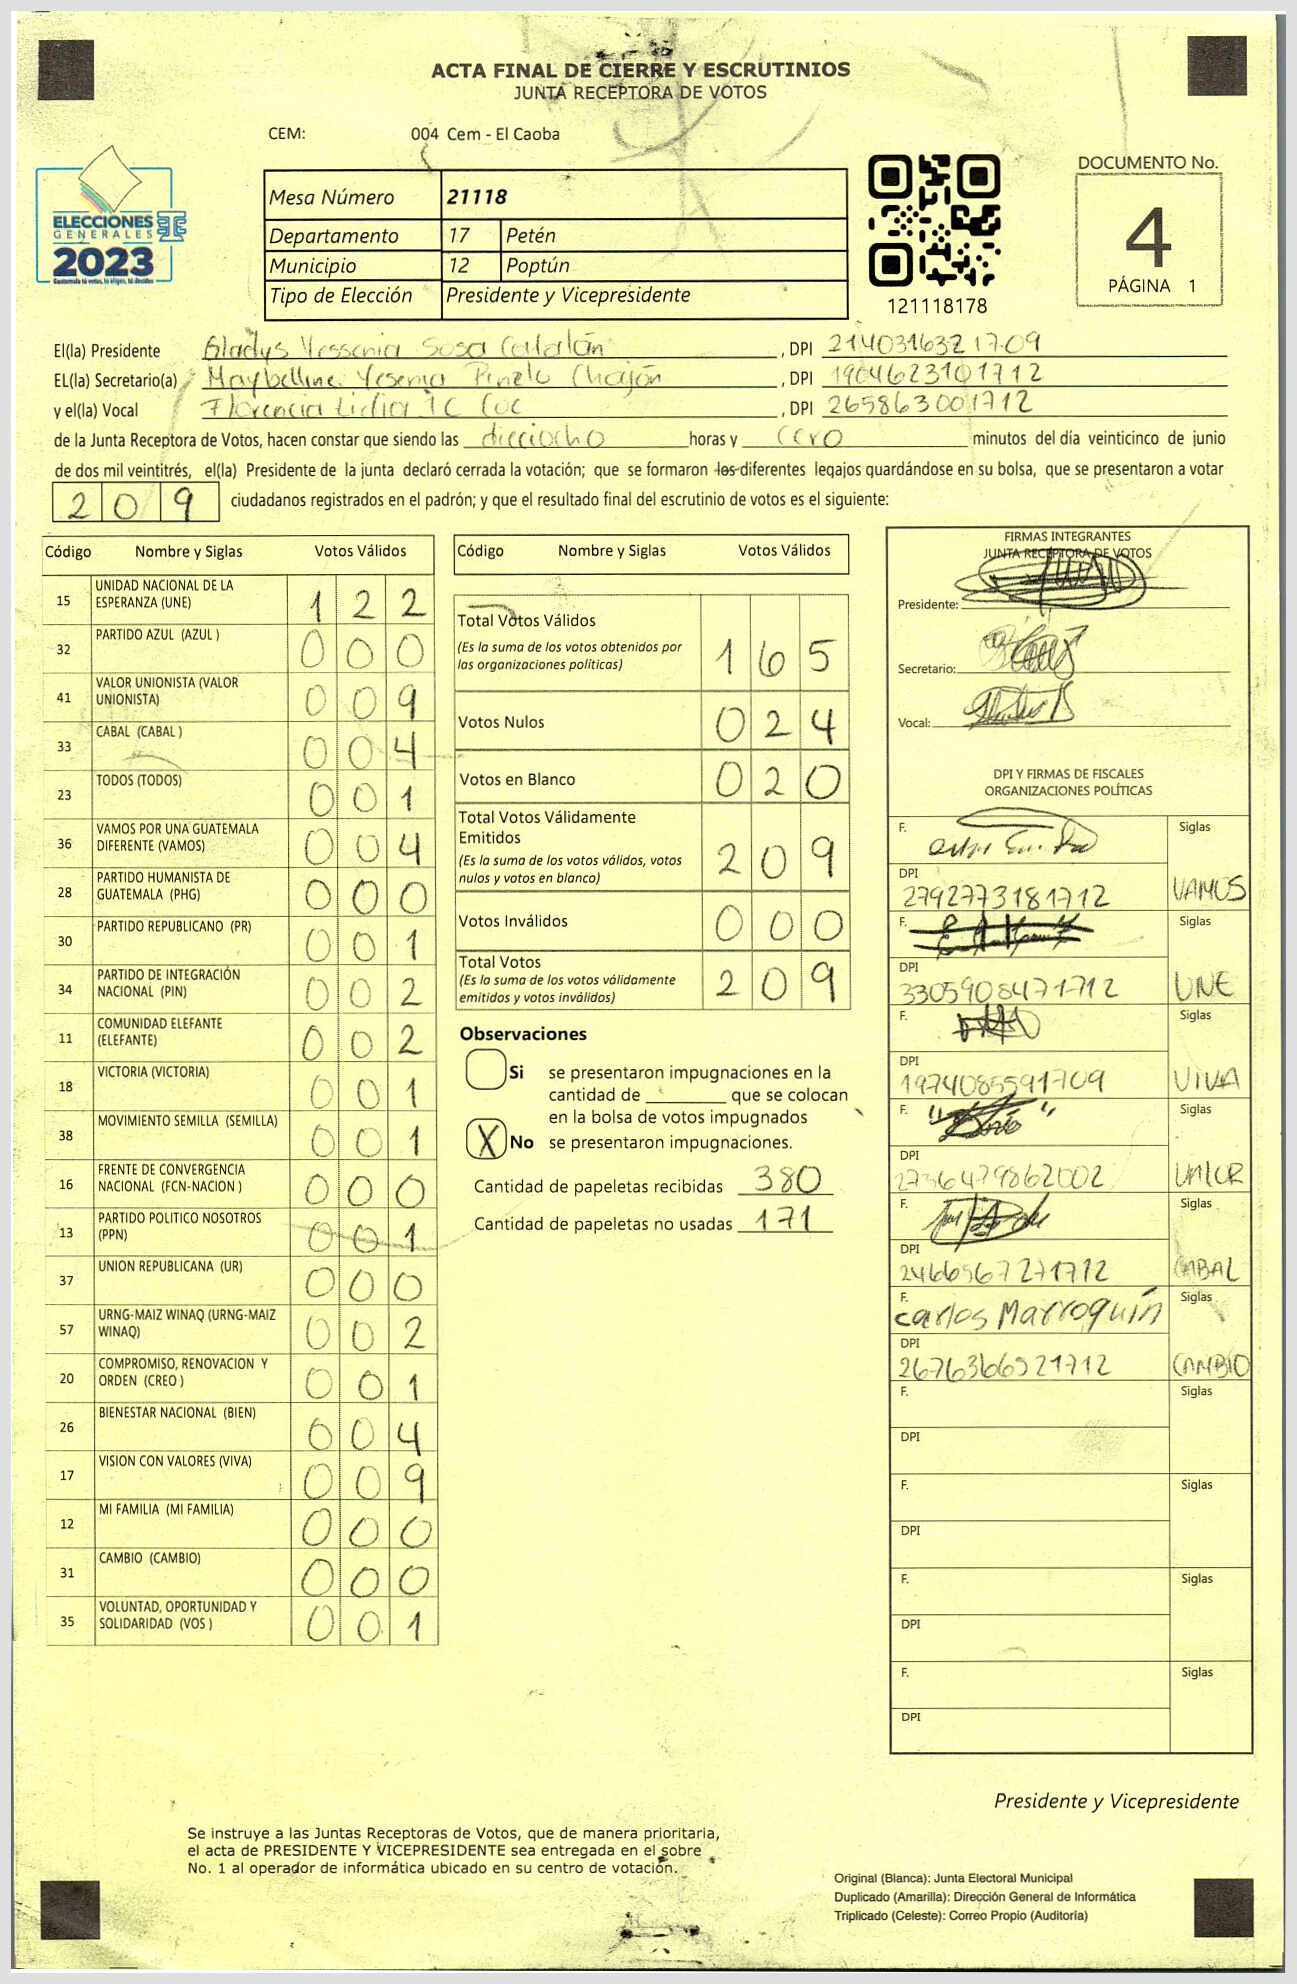 ACTA FINAL DE CIERRE Y ESCRUTINIOS
JUNTA RECEPTORA DE VOTOS
CEM: 004 Cem - El Caoba
DOCUMENTO No.
4
PÁGINA 1
ELECCIONES
GENERALES
2023
Guatemala tú votas, tú eliges, tú decides
Mesa Número 21118
Departamento 17 Petén
Municipio 12 Poptún
Tipo de Elección Presidente y Vicepresidente
121118178
El(la) Presidente Gladys Yessenia Sosa Catalán, DPI 2140316321709
EL(la) Secretario(a) Maybelline Yesenia Pinelo Chajón, DPI 1904623101712
y el(la) Vocal Florencia Lidia Ic Cuc, DPI 265863001712
de la Junta Receptora de Votos, hacen constar que siendo las dieciocho horas y cero minutos del día veinticinco de junio
de dos mil veintitrés, el(la) Presidente de la junta declaró cerrada la votación; que se formaron los diferentes legajos quardándose en su bolsa, que se presentaron a votar
209 ciudadanos registrados en el padrón; y que el resultado final del escrutinio de votos es el siguiente:
Código Nombre y Siglas Votos Válidos
15 UNIDAD NACIONAL DE LA ESPERANZA (UNE) 122
32 PARTIDO AZUL (AZUL ) 000
41 VALOR UNIONISTA (VALOR UNIONISTA) 009
33 CABAL (CABAL ) 004
23 TODOS (TODOS) 001
36 VAMOS POR UNA GUATEMALA DIFERENTE (VAMOS) 004
28 PARTIDO HUMANISTA DE GUATEMALA (PHG) 000
30 PARTIDO REPUBLICANO (PR) 001
34 PARTIDO DE INTEGRACIÓN NACIONAL (PIN) 002
11 COMUNIDAD ELEFANTE (ELEFANTE) 002
18 VICTORIA (VICTORIA) 001
38 MOVIMIENTO SEMILLA (SEMILLA) 001
16 FRENTE DE CONVERGENCIA NACIONAL (FCN-NACION ) 000
13 PARTIDO POLITICO NOSOTROS (PPN) 001
37 UNION REPUBLICANA (UR) 000
57 URNG-MAIZ WINAQ (URNG-MAIZ WINAQ) 002
20 COMPROMISO, RENOVACION Y ORDEN (CREO ) 001
26 BIENESTAR NACIONAL (BIEN) 004
17 VISION CON VALORES (VIVA) 009
12 MI FAMILIA (MI FAMILIA) 000
31 CAMBIO (CAMBIO) 000
35 VOLUNTAD, OPORTUNIDAD Y SOLIDARIDAD (VOS ) 001
Código Nombre y Siglas Votos Válidos
Total Votos Válidos
(Es la suma de los votos obtenidos por
las organizaciones políticas) 165
Votos Nulos 024
Votos en Blanco 020
Total Votos Válidamente
Emitidos
(Es la suma de los votos válidos, votos
nulos y votos en blanco) 209
Votos Inválidos 000
Total Votos
(Es la suma de los votos válidamente
emitidos y votos inválidos) 209
Observaciones
Si se presentaron impugnaciones en la
cantidad de ________ que se colocan
en la bolsa de votos impugnados
X No se presentaron impugnaciones.
Cantidad de papeletas recibidas 380
Cantidad de papeletas no usadas 171
FIRMAS INTEGRANTES
JUNTA RECEPTORA DE VOTOS
Presidente:
Secretario:
Vocal:
DPI Y FIRMAS DE FISCALES
ORGANIZACIONES POLÍTICAS
F. Siglas
DPI
2792773181712 VAMOS
F. Siglas
DPI
3305908471712 UNE
F. Siglas
DPI
1974085591709 VIVA
F. Siglas
DPI
2736479862002 VALOR
F. Siglas
DPI
2466967271712 CABAL
F. Siglas
Carlos Marroquín
DPI
2676366921712 CAMBIO
F. Siglas
DPI
F. Siglas
DPI
F. Siglas
DPI
F. Siglas
DPI
Presidente y Vicepresidente
Se instruye a las Juntas Receptoras de Votos, que de manera prioritaria,
el acta de PRESIDENTE Y VICEPRESIDENTE sea entregada en el sobre
No. 1 al operador de informática ubicado en su centro de votación.
Original (Blanca): Junta Electoral Municipal
Duplicado (Amarilla): Dirección General de Informática
Triplicado (Celeste): Correo Propio (Auditoría)